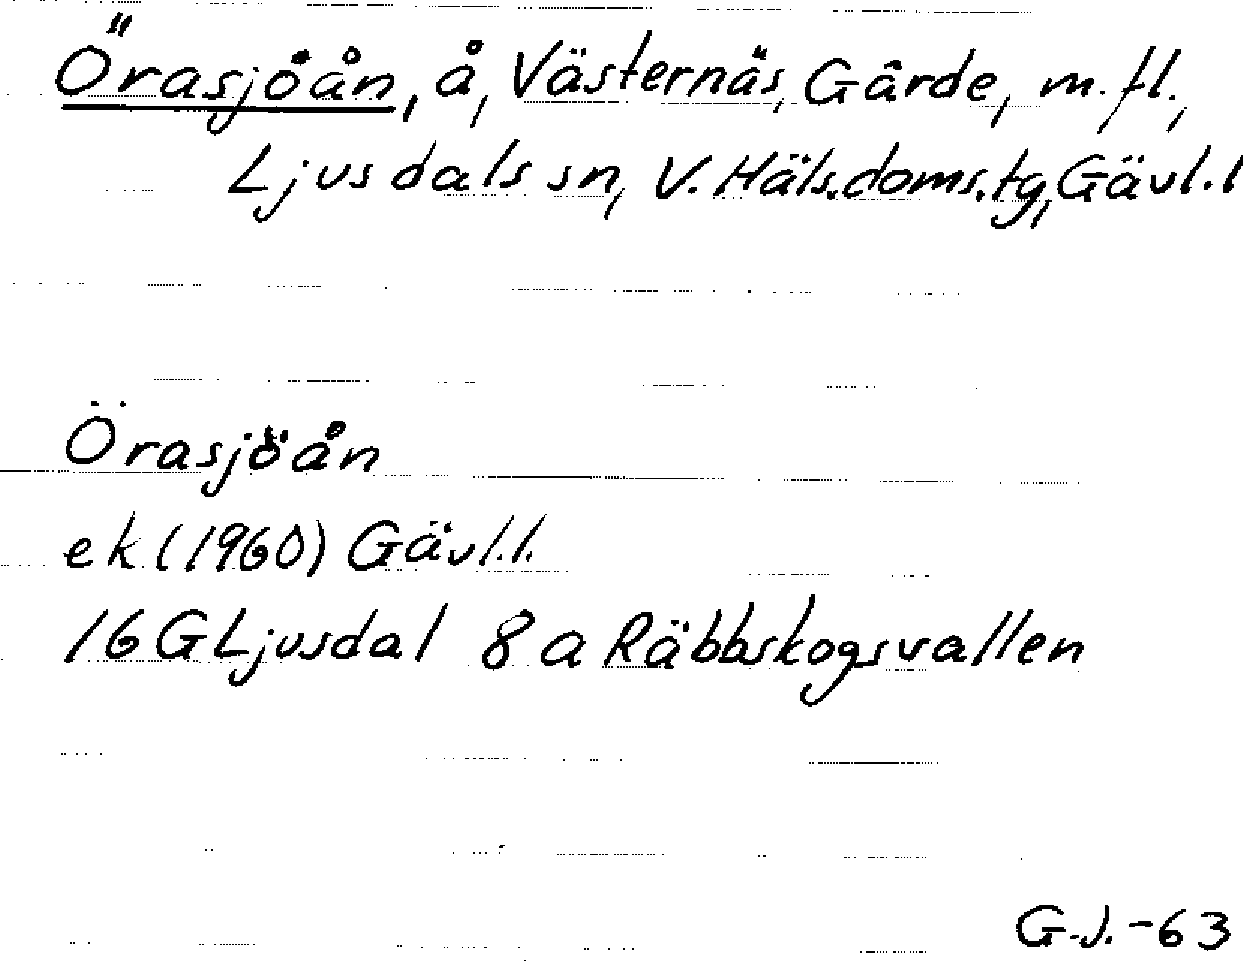 Örasjöån, å, Västernäs, Gärde, m.fl.,
Ljusdals sn, V. Häls.doms.tg, Gävl.l
Örasjöån
ek (1960) Gävl.l.
16 G Ljusdal 8 a Räbbskogsvallen
G.J. -63